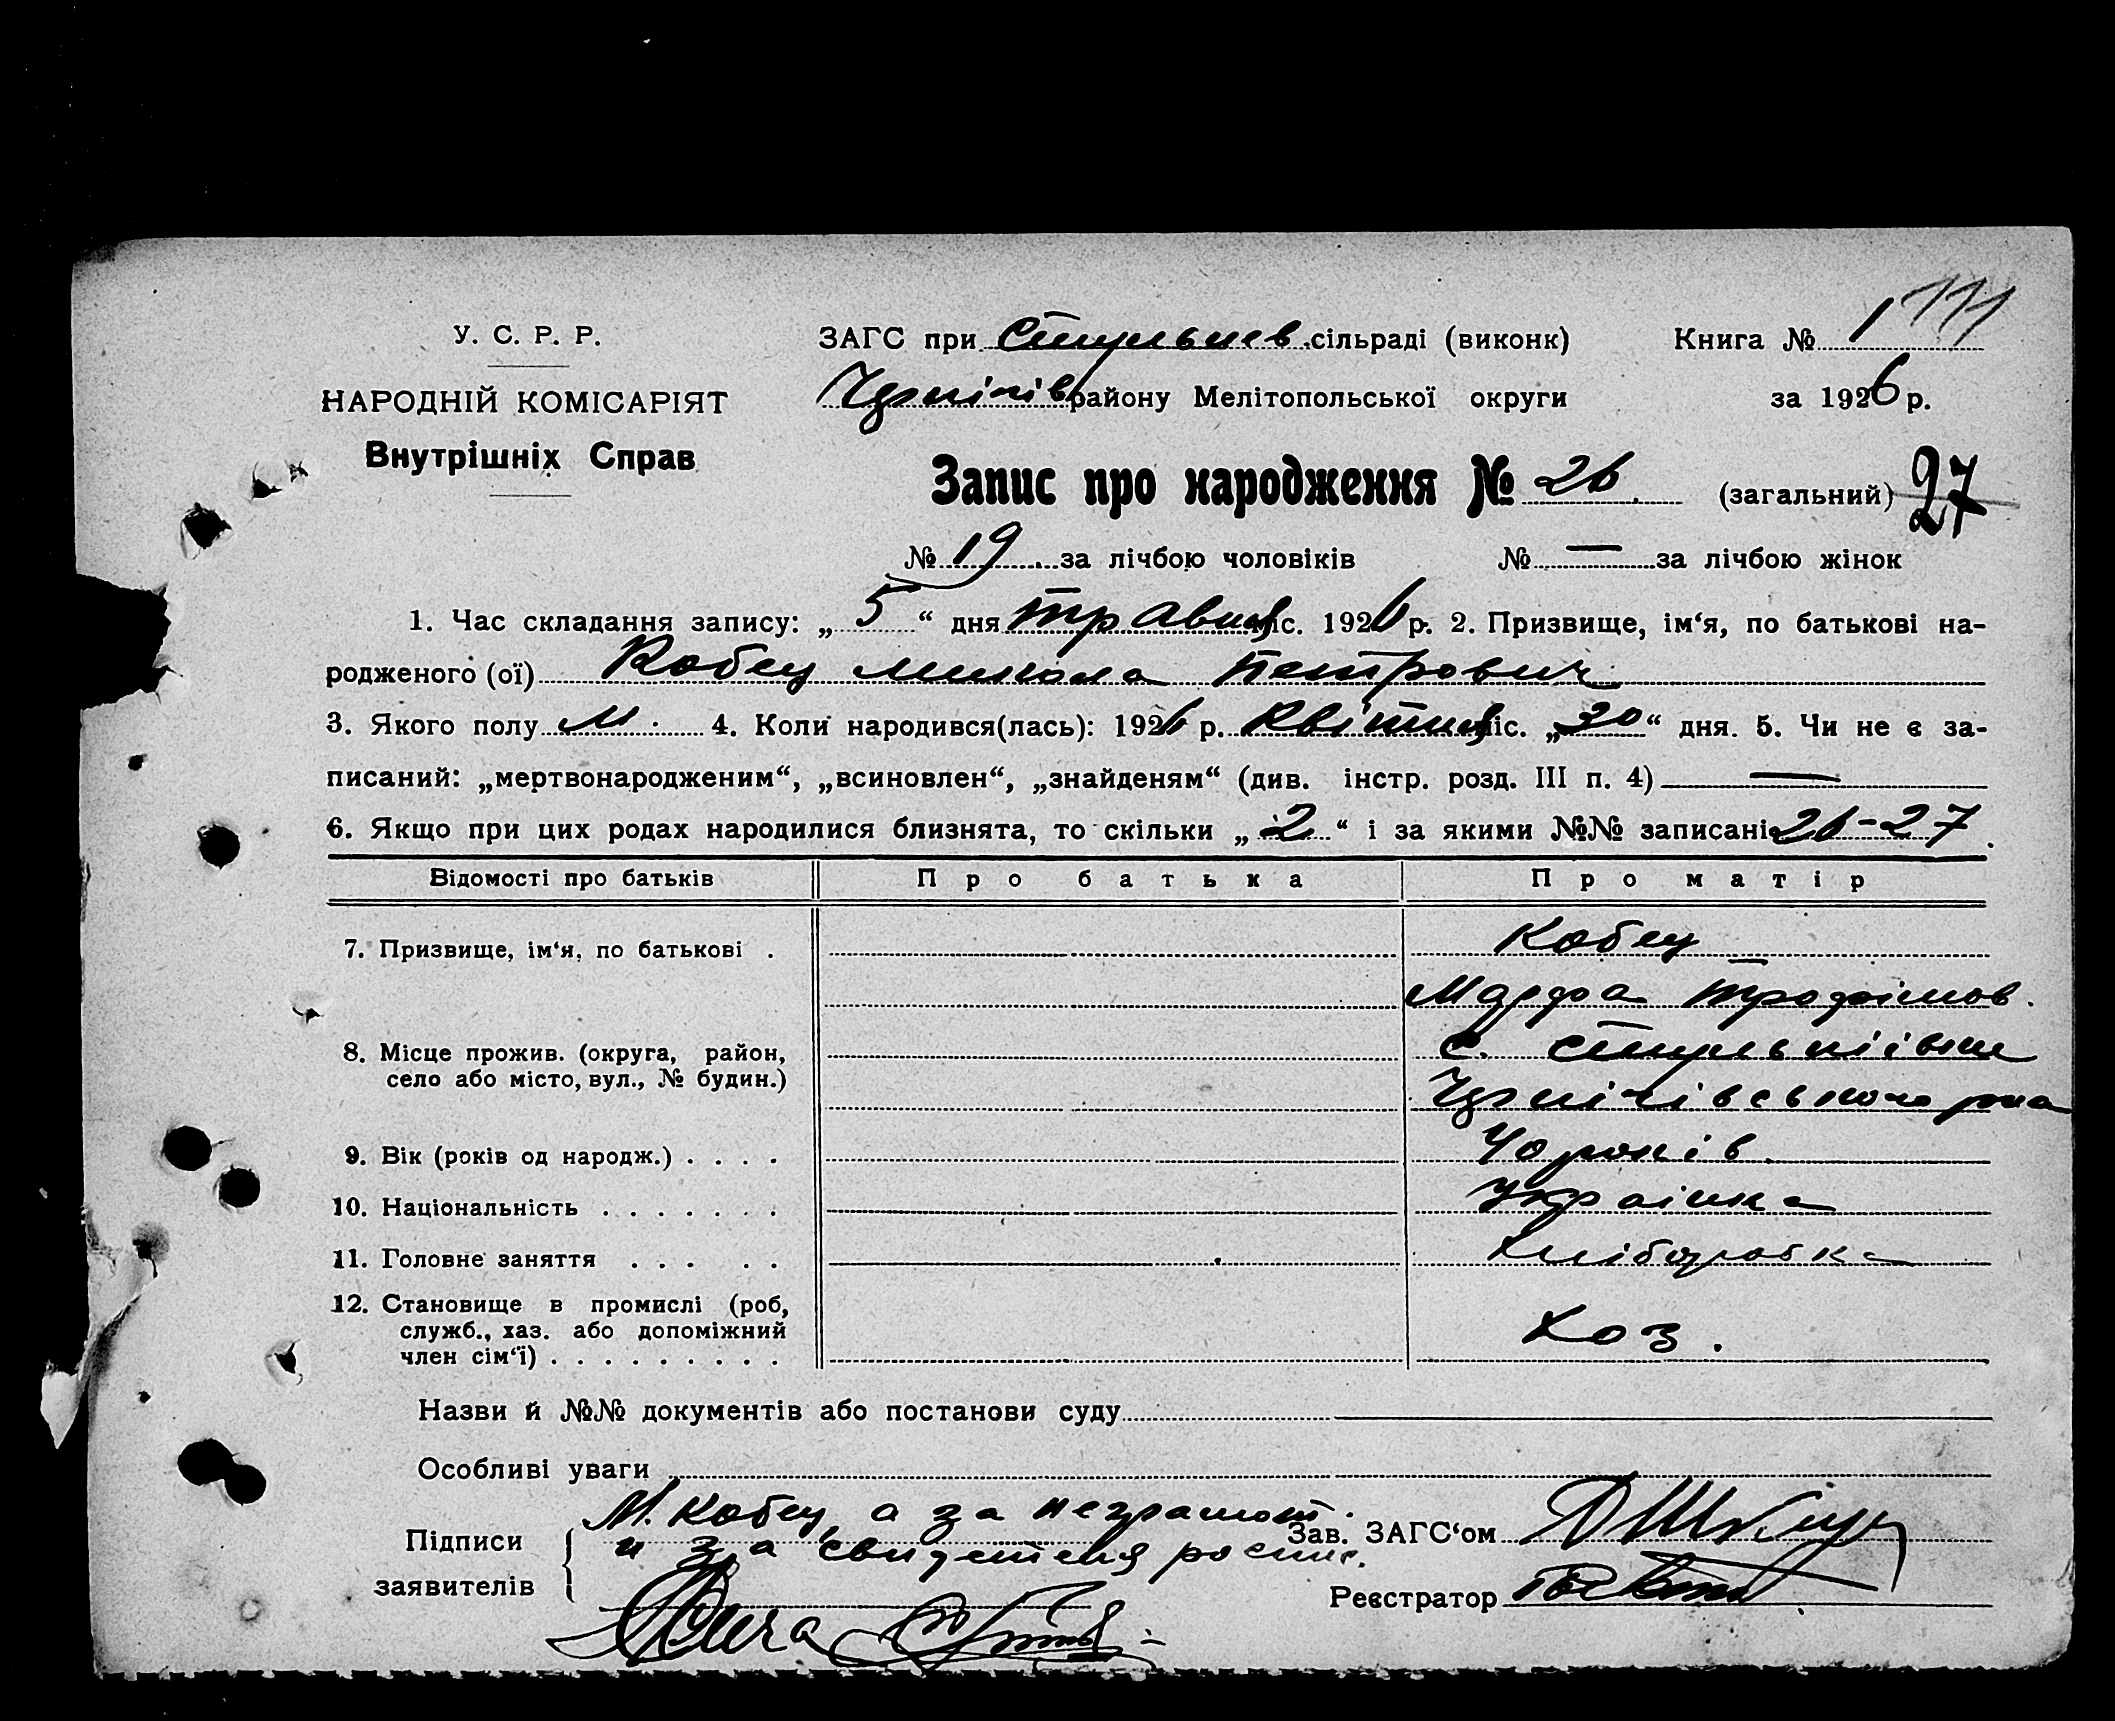 У. С. Р. Р.
НАРОДНІЙ КОМІСАРІЯТ
Внутрішніх Справ
ЗАГС при Стульнев. сільраді (виконк)
Книга № 1
Чернігів району Мелітопольської округи
за 1926 р.
Запис про народження № 26. (загальний) 27
№ 19 за лічбою чоловіків № — за лічбою жінок
1. Час складання запису: „ 5 “ дня травня міс. 1926 р. 2. Призвище, ім‘я, по батькові на-
родженого (ої) Кобец Микола Петрович
3. Якого полу М. 4. Коли народився(лась): 1926 р. Квітня міс. „ 30 “ дня. 5. Чи не є за-
писаний: „мертвонародженим“, „всиновлен“, „знайденям“ (див. інстр. розд. III п. 4) —
6. Якщо при цих родах народилися близнята, то скільки „ 2 “ і за якими №№ записані 26-27.
Відомості про батьків Про батька Про матір
7. Призвище, ім‘я, по батькові . Кобец
Марфа Трофімов.
8. Місце прожив. (округа, район, с.
село або місто, вул., № будин.) Чернігівського рна
9. Вік (років од народж.) . . . . 40 років.
10. Національність . . . . . . . Українка
11. Головне заняття . . . . . Хліборобка
12. Становище в промислі (роб,
служб., хаз. або допоміжний Хоз.
член сім‘ї) . . . . . . . . .
Назви й №№ документів або постанови суду
Особливі уваги
Підписи
заявителів
М. Кобец, а за неграмот.
и за свидетеля роспис.
Зав. ЗАГС‘ом
Реєстратор